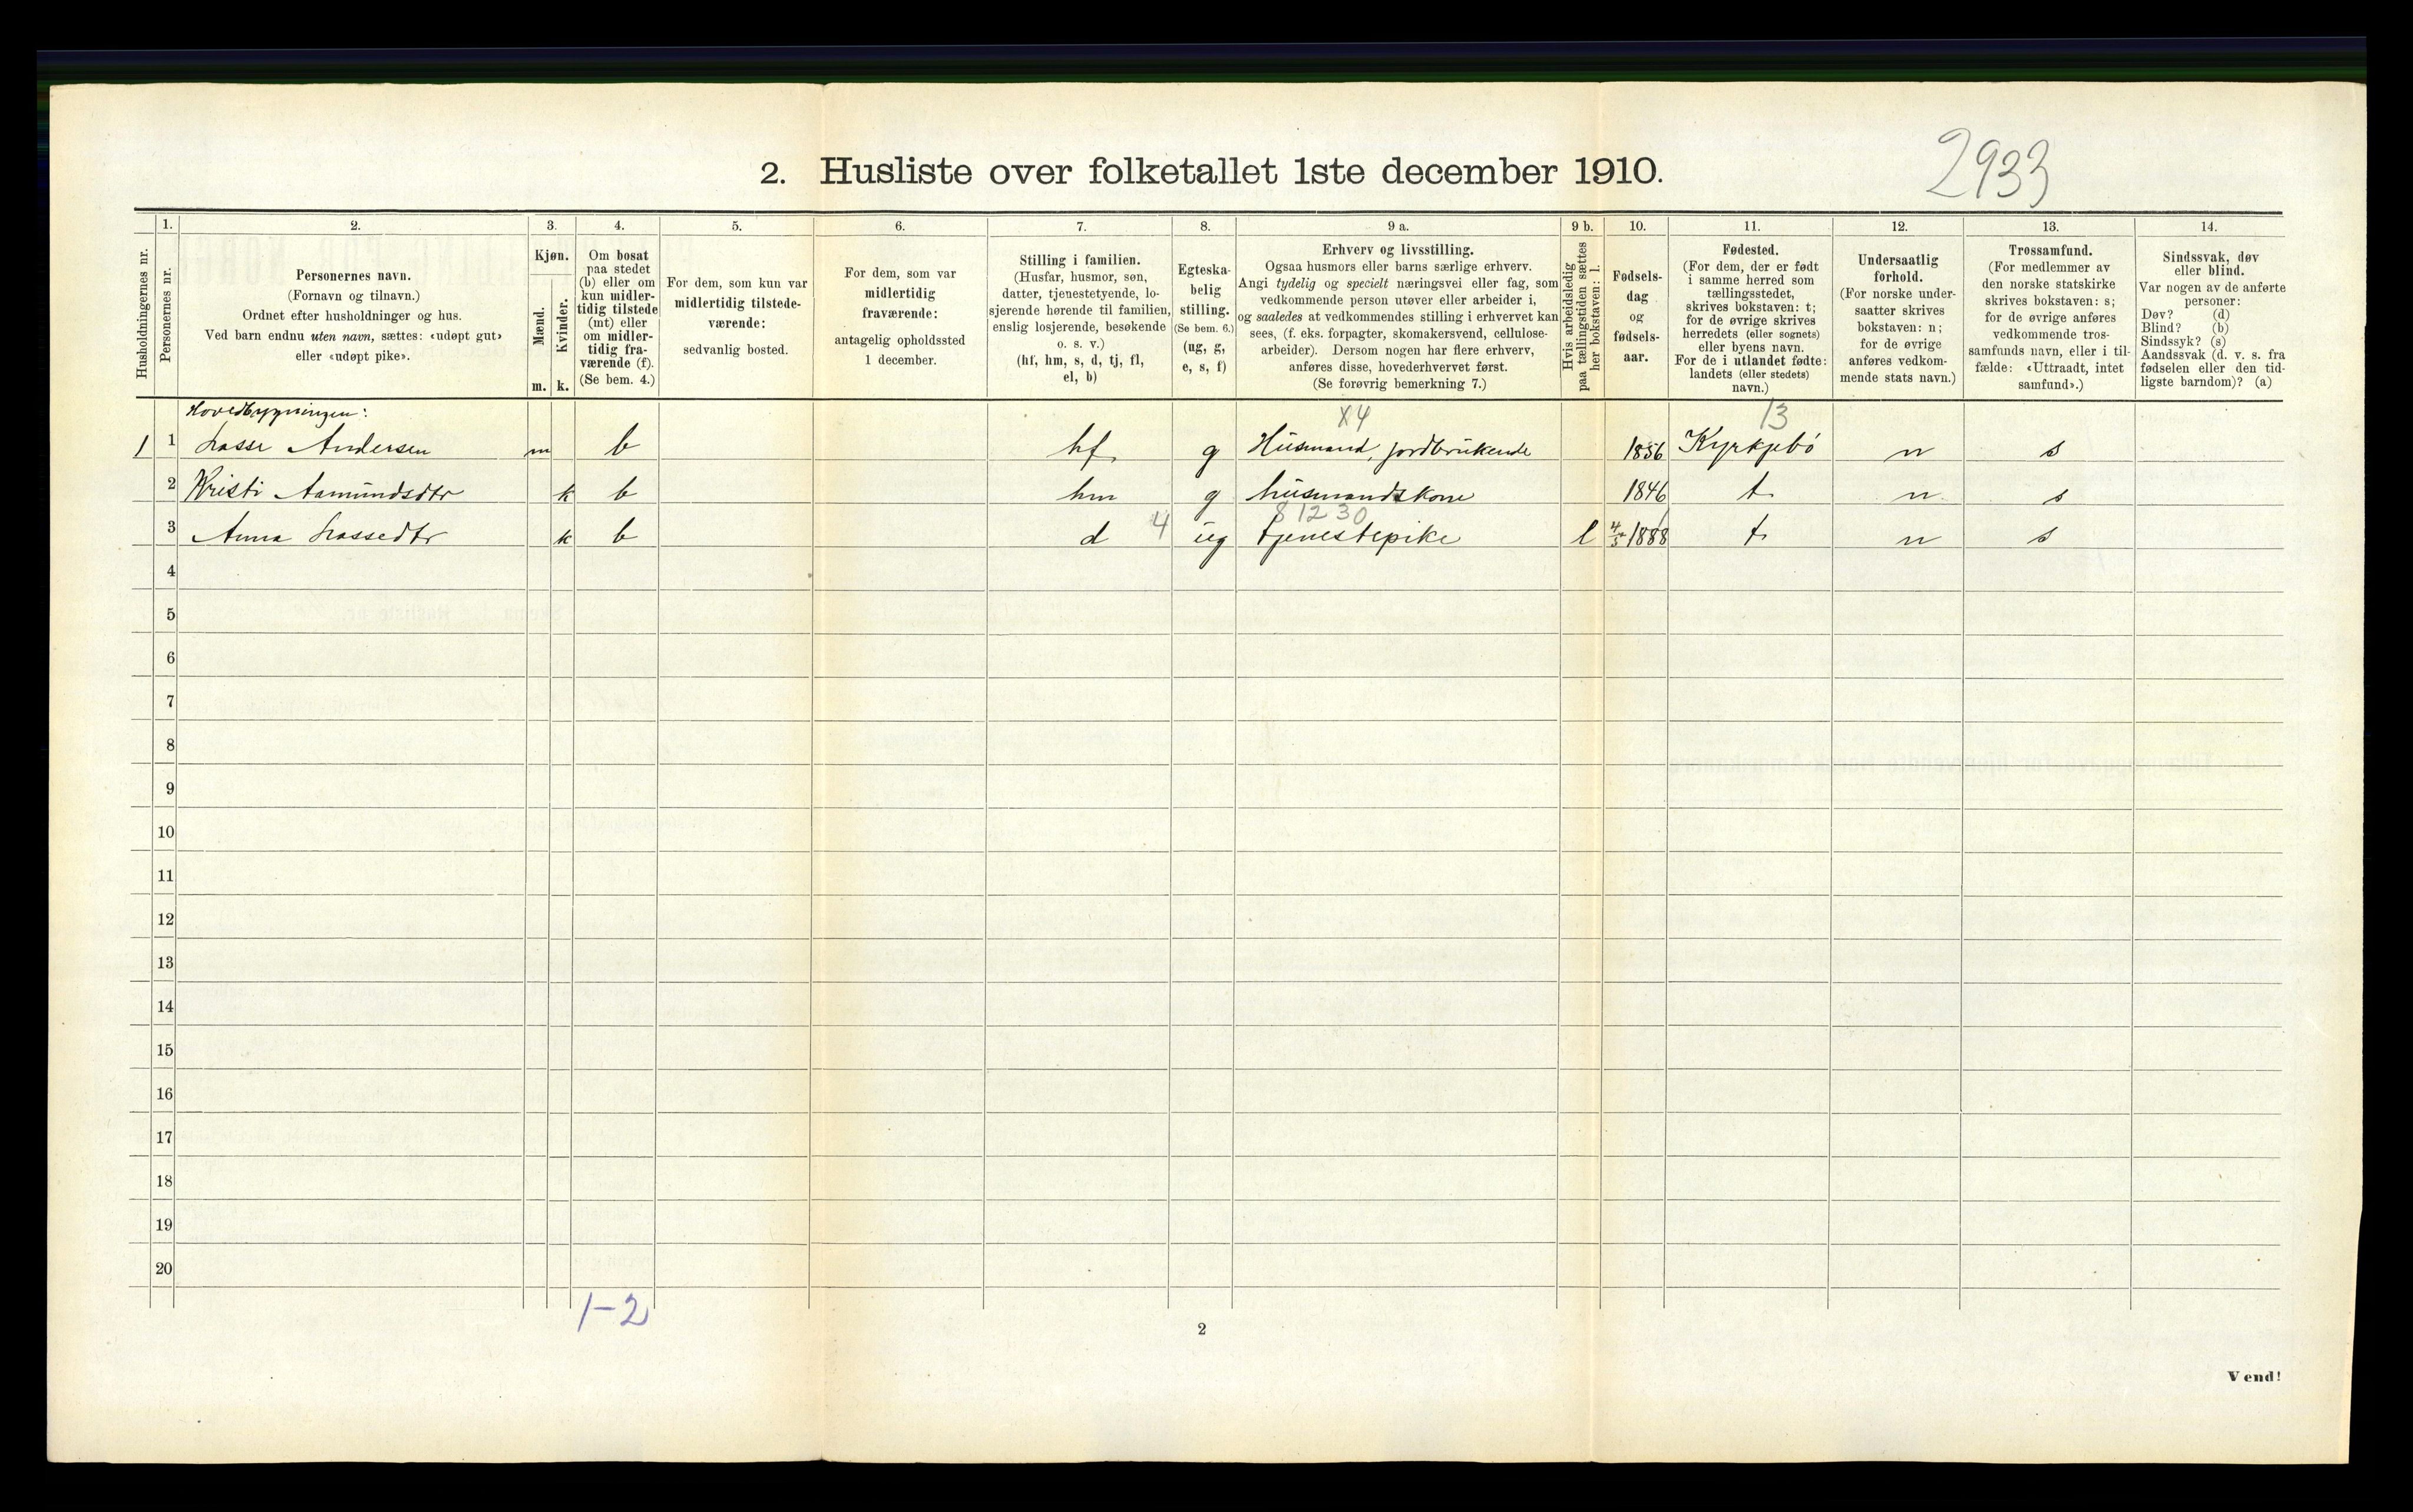 2933
2. Husliste over folketallet 1ste december 1910.
Husholdningernes nr.
1.
Personernes nr.
2.
Personernes navn.
(Fornavn og tilnavn.)
Ordnet efter husholdninger og hus.
Ved barn endnu uten navn, sættes: «udøpt gut»
eller «udøpt pike».
3.
Kjøn.
Mænd.
Kvinder.
m. k.
4.
Om bosat
paa stedet
(b) eller om
kun midler-
tidig tilstede
(mt) eller
om midler-
tidig fra-
værende (f).
(Se bem. 4.)
5.
For dem, som kun var
midlertidig tilstede-
værende:
sedvanlig bosted.
6.
For dem, som var
midlertidig
fraværende:
antagelig opholdssted
1 december.
7.
Stilling i familien.
(Husfar, husmor, søn,
datter, tjenestetyende, lo-
sjerende hørende til familien,
enslig losjerende, besøkende
o. s. v.)
(hf, hm, s, d, tj, fl,
el, b)
8.
Egteska-
belig
stilling.
(Se bem. 6.)
(ug, g,
e, s, f)
9 a.
Erhverv og livsstilling.
Ogsaa husmors eller barns særlige erhverv.
Angi tydelig og specielt næringsvei eller fag, som
vedkommende person utøver eller arbeider i,
og saaledes at vedkommendes stilling i erhvervet kan
sees, (f. eks. forpagter, skomakersvend, cellulose-
arbeider). Dersom nogen har flere erhverv,
anføres disse, hovederhvervet først.
(Se forøvrig bemerkning 7.)
9 b.
Hvis arbeidsledig
paa tællingstiden sættes
her bokstaven: l.
10.
Fødsels-
dag
og
fødsels-
aar.
11.
Fødested.
(For dem, der er født
i samme herred som
tællingsstedet,
skrives bokstaven: t;
for de øvrige skrives
herredets (eller sognets)
eller byens navn.
For de i utlandet fødte:
landets (eller stedets)
navn.)
12.
Undersaatlig
forhold.
(For norske under-
saatter skrives
bokstaven: n;
for de øvrige
anføres vedkom-
mende stats navn.)
13.
Trossamfund.
(For medlemmer av
den norske statskirke
skrives bokstaven: s;
for de øvrige anføres
vedkommende tros-
samfunds navn, eller i til-
fælde: «Uttraadt, intet
samfund».)
14.
Sindssvak, døv
eller blind.
Var nogen av de anførte
personer:
Døv? (d)
Blind? (b)
Sindssyk? (s)
Aandssvak (d. v. s. fra
fødselen eller den tid-
ligste barndom)? (a)
Hovedbygningen: X4 13
1 1 Lasse Andersen m b hf g Husmand, jordbrukende 1856 Kyrkjebø n s
2 Kristi Aamundsdtr k b hm g husmandskone 1846 t n s
8 12 30
3 Anna Lassedtr k b d 4 ug tjenestepike l 4/5 1888 t n s
4
5
6
7
8
9
10
11
12
13
14
15
16
17
18
19
20
1-2
2
Vend!